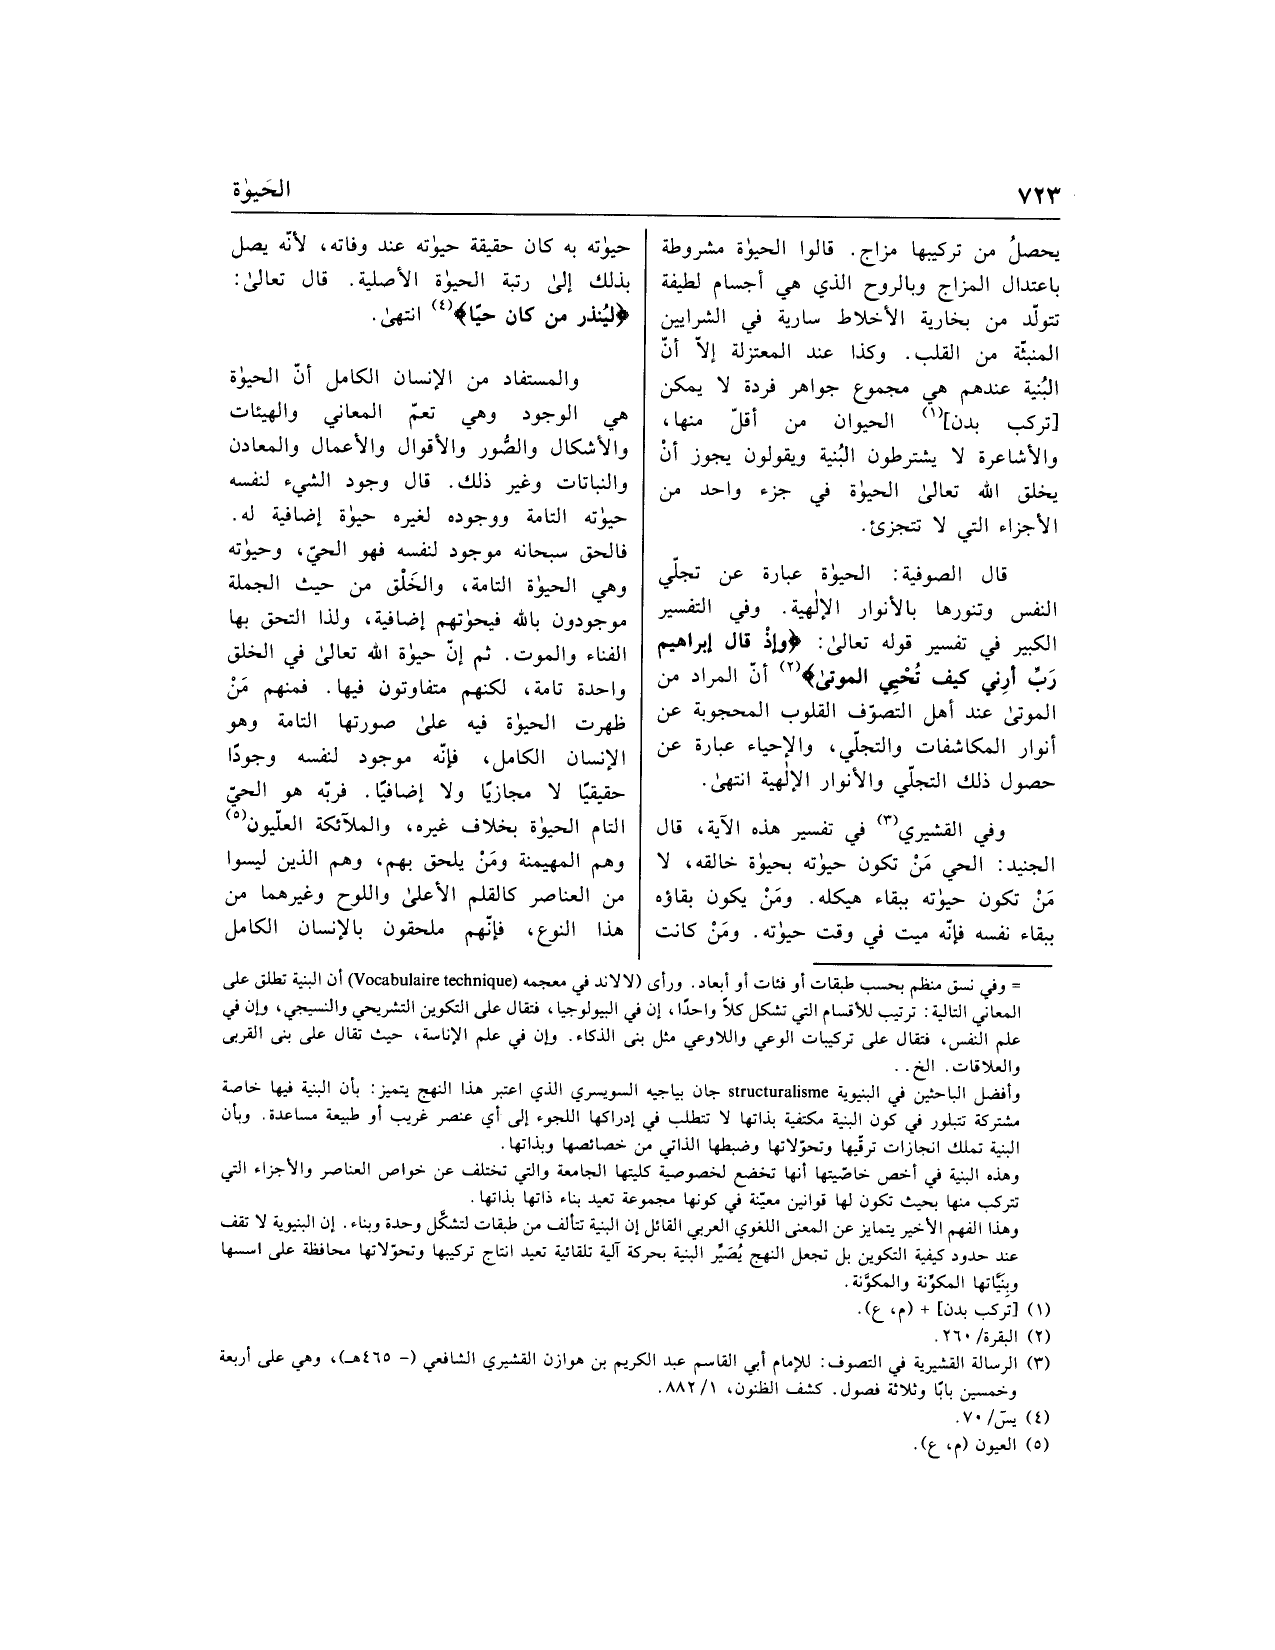 ٧٢٣
الحَيوٰة
يحصلُ من تركيبها مزاج. قالوا الحيوٰة مشروطة
باعتدال المزاج وبالروح الذي هي أجسام لطيفة
تتولّد من بخارية الأخلاط سارية في الشرايين
المنبثّة من القلب. وكذا عند المعتزلة إلاّ أنّ
البُنية عندهم هي مجموع جواهر فردة لا يمكن
[تركب بدن](١) الحيوان من أقلّ منها،
والأشاعرة لا يشترطون البُنية ويقولون يجوز أنْ
يخلق الله تعالىٰ الحيوٰة في جزء واحد من
الأجزاء التي لا تتجزئ.
قال الصوفية: الحيوٰة عبارة عن تجلّي
النفس وتنورها بالأنوار الإلٰهية. وفي التفسير
الكبير في تفسير قوله تعالىٰ: ﴿وإذْ قال إبراهيم
رَبِّ أرِني كيف تُحْيِي الموتىٰ﴾(٢) أنّ المراد من
الموتىٰ عند أهل التصوّف القلوب المحجوبة عن
أنوار المكاشفات والتجلّي، والإحياء عبارة عن
حصول ذلك التجلّي والأنوار الإلٰهية انتهىٰ.
وفي القشيري(٣) في تفسير هذه الآية، قال
الجنيد: الحي مَنْ تكون حيوٰته بحيوٰة خالقه، لا
مَنْ تكون حيوٰته ببقاء هيكله. ومَنْ يكون بقاؤه
ببقاء نفسه فإنّه ميت في وقت حيوٰته. ومَنْ كانت
حيوٰته به كان حقيقة حيوٰته عند وفاته، لأنّه يصل
بذلك إلىٰ رتبة الحيوٰة الأصلية. قال تعالىٰ:
﴿ليُنذر من كان حيًّا﴾(٤) انتهىٰ.
والمستفاد من الإنسان الكامل أنّ الحيوٰة
هي الوجود وهي تعمّ المعاني والهيئات
والأشكال والصُّور والأقوال والأعمال والمعادن
والنباتات وغير ذلك. قال وجود الشيء لنفسه
حيوٰته التامة ووجوده لغيره حيوٰة إضافية له.
فالحق سبحانه موجود لنفسه فهو الحيّ، وحيوٰته
وهي الحيوٰة التامة، والخَلْق من حيث الجملة
موجودون بالله فيحوٰتهم إضافية، ولذا التحق بها
الفناء والموت. ثم إنّ حيوٰة الله تعالىٰ في الخلق
واحدة تامة، لكنهم متفاوتون فيها. فمنهم مَنْ
ظهرت الحيوٰة فيه علىٰ صورتها التامة وهو
الإنسان الكامل، فإنّه موجود لنفسه وجودًا
حقيقيًا لا مجازيًا ولا إضافيًا. فربّه هو الحيّ
التام الحيوٰة بخلاف غيره، والملآئكة العلّيون(٥)
وهم المهيمنة ومَنْ يلحق بهم، وهم الذين ليسوا
من العناصر كالقلم الأعلىٰ واللوح وغيرهما من
هذا النوع، فإنّهم ملحقون بالإنسان الكامل
= وفي نسق منظم بحسب طبقات أو فئات أو أبعاد. ورأى (لالاند في معجمه (Vocabulaire technique) أن البنية تطلق على
المعاني التالية: ترتيب للأقسام التي تشكل كلاً واحدًا، إن في البيولوجيا، فتقال على التكوين التشريحي والنسيجي، وإن في
علم النفس، فتقال على تركيبات الوعي واللاوعي مثل بنى الذكاء. وإن في علم الإناسة، حيث تقال على بنى القربى
والعلاقات. الخ..
وأفضل الباحثين في البنيوية structuralisme جان بياجيه السويسري الذي اعتبر هذا النهج يتميز: بأن البنية فيها خاصة
مشتركة تتبلور في كون البنية مكتفية بذاتها لا تتطلب في إدراكها اللجوء إلى أي عنصر غريب أو طبيعة مساعدة. وبأن
البنية تملك انجازات ترقّيها وتحوّلاتها وضبطها الذاتي من خصائصها وبذاتها.
وهذه البنية في أخص خاصّيتها أنها تخضع لخصوصية كليتها الجامعة والتي تختلف عن خواص العناصر والأجزاء التي
تتركب منها بحيث تكون لها قوانين معيّنة في كونها مجموعة تعيد بناء ذاتها بذاتها.
وهذا الفهم الأخير يتمايز عن المعنى اللغوي العربي القائل إن البنية تتألف من طبقات لتشكَّل وحدة وبناء. إن البنيوية لا تقف
عند حدود كيفية التكوين بل تجعل النهج يُصَيِّر البنية بحركة آلية تلقائية تعيد انتاج تركيبها وتحوّلاتها محافظة على اسسها
وبِنَيّاتها المكوِّنة والمكوَّنة.
(١) [تركب بدن] + (م، ع).
(٢) البقرة/ ٢٦٠.
(٣) الرسالة القشيرية في التصوف: للإمام أبي القاسم عبد الكريم بن هوازن القشيري الشافعي (- ٤٦٥هـ)، وهي على أربعة
وخمسين بابًا وثلاثة فصول. كشف الظنون، ١/ ٨٨٢.
(٤) يسّ/ ٧٠.
(٥) العيون (م، ع).